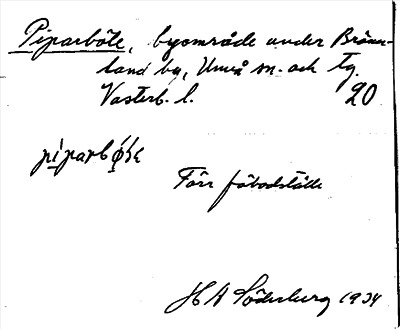 Piparböle, byområde under Brän-
land by, Umeå sn. och tg.
Västerb. l. 20
Förr fäbodställe
H A Söderberg 1934